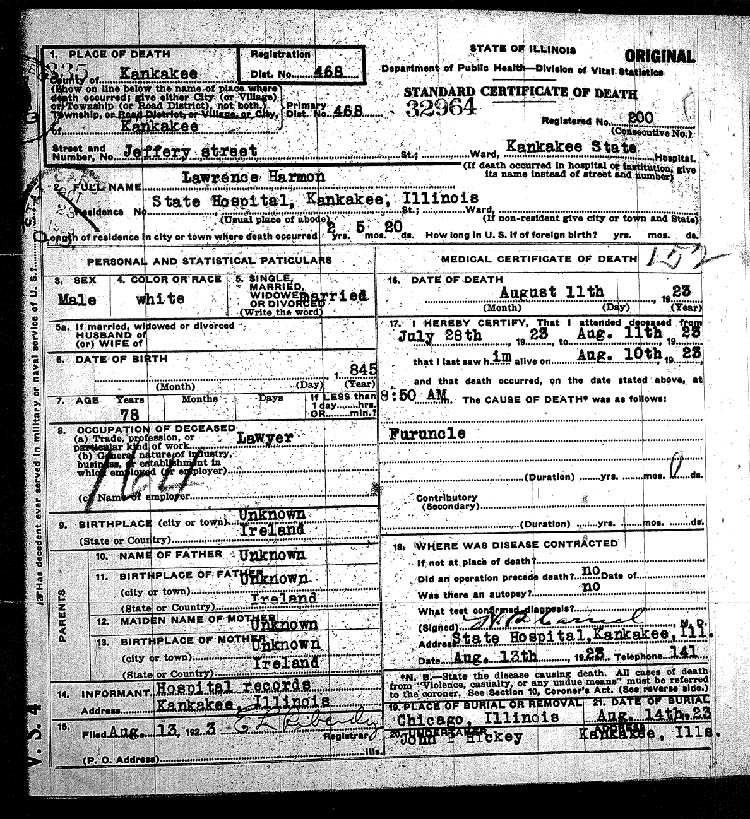 STATE OF ILLINOIS
ORIGINAL
Department of Public Health—Division of Vital Statistics
STANDARD CERTIFICATE OF DEATH
32964
Registered No. 200
(Consecutive No.)
1. PLACE OF DEATH
County of Kankakee
Registration
Dist. No. 468
(Show on line below the name of place where
death occurred; give either City (or Village)
or Township (or Road District), not both.)
Township, or Road District, or Village, or City,
Primary
Dist. No. 468
Kankakee
Street and
Number, No. Jeffery street St.; Ward, Kankakee State Hospital.
(If death occurred in hospital or institution, give
its name instead of street and number)
2. FULL NAME Lawrence Harmon
Residence No. State Hospital, Kankakee, Illinois St.; Ward,
(Usual place of abode) (If non-resident give city or town and State)
Length of residence in city or town where death occurred 2 yrs. 5 mos. 20 ds. How long in U. S. if of foreign birth? yrs. mos. ds.
PERSONAL AND STATISTICAL PATICULARS
3. SEX
Male
4. COLOR OR RACE
white
5. SINGLE,
MARRIED,
WIDOWED
OR DIVORCED
(Write the word)
married
5a. If married, widowed or divorced
HUSBAND of
(or) WIFE of
6. DATE OF BIRTH
1845
(Month) (Day) (Year)
7. AGE Years Months Days If LESS than
1 day hrs.
OR min.?
78
8. OCCUPATION OF DECEASED
(a) Trade, profession, or
particular kind of work Lawyer
(b) General nature of industry,
business, or establishment in
which employed (or employer)
(c) Name of employer
9. BIRTHPLACE (city or town) Unknown
(State or Country) Ireland
PARENTS
10. NAME OF FATHER Unknown
11. BIRTHPLACE OF FATHER
(city or town) Unknown
(State or Country) Ireland
12. MAIDEN NAME OF MOTHER Unknown
13. BIRTHPLACE OF MOTHER Unknown
(city or town)
(State or Country) Ireland
14. INFORMANT Hospital records
Address Kankakee, Illinois
15. Filed Aug. 13, 1923
Registrar
(P. O. Address) Ills.
MEDICAL CERTIFICATE OF DEATH 152
16. DATE OF DEATH
August 11th, 1923
(Month) (Day) (Year)
17. I HEREBY CERTIFY, That I attended deceased from
July 28th 1923 to Aug. 11th 1923
that I last saw him alive on Aug. 10th, 1923,
and that death occurred, on the date stated above, at
8:50 AM. The CAUSE OF DEATH* was as follows:
Furuncle
(Duration) yrs. mos. ds.
Contributory
(Secondary)
(Duration) yrs. mos. ds.
18. WHERE WAS DISEASE CONTRACTED
If not at place of death?
Did an operation precede death? no Date of
Was there an autopsy? no
What test confirmed diagnosis?
(Signed) M. D.
Address State Hospital, Kankakee, Ill.
Date Aug. 13th 1923 Telephone 141
*N. B.—State the disease causing death. All cases of death
from "Violence, casualty, or any undue means" must be referred
to the coroner. See Section 10, Coroner's Act. (See reverse side.)
19. PLACE OF BURIAL OR REMOVAL
Chicago, Illinois
21. DATE OF BURIAL
Aug. 14th, 23
20. UNDERTAKER
John F Hickey
Kankakee, Ills.
Has decedent ever served in military or naval service of U. S.?
V. S. 4